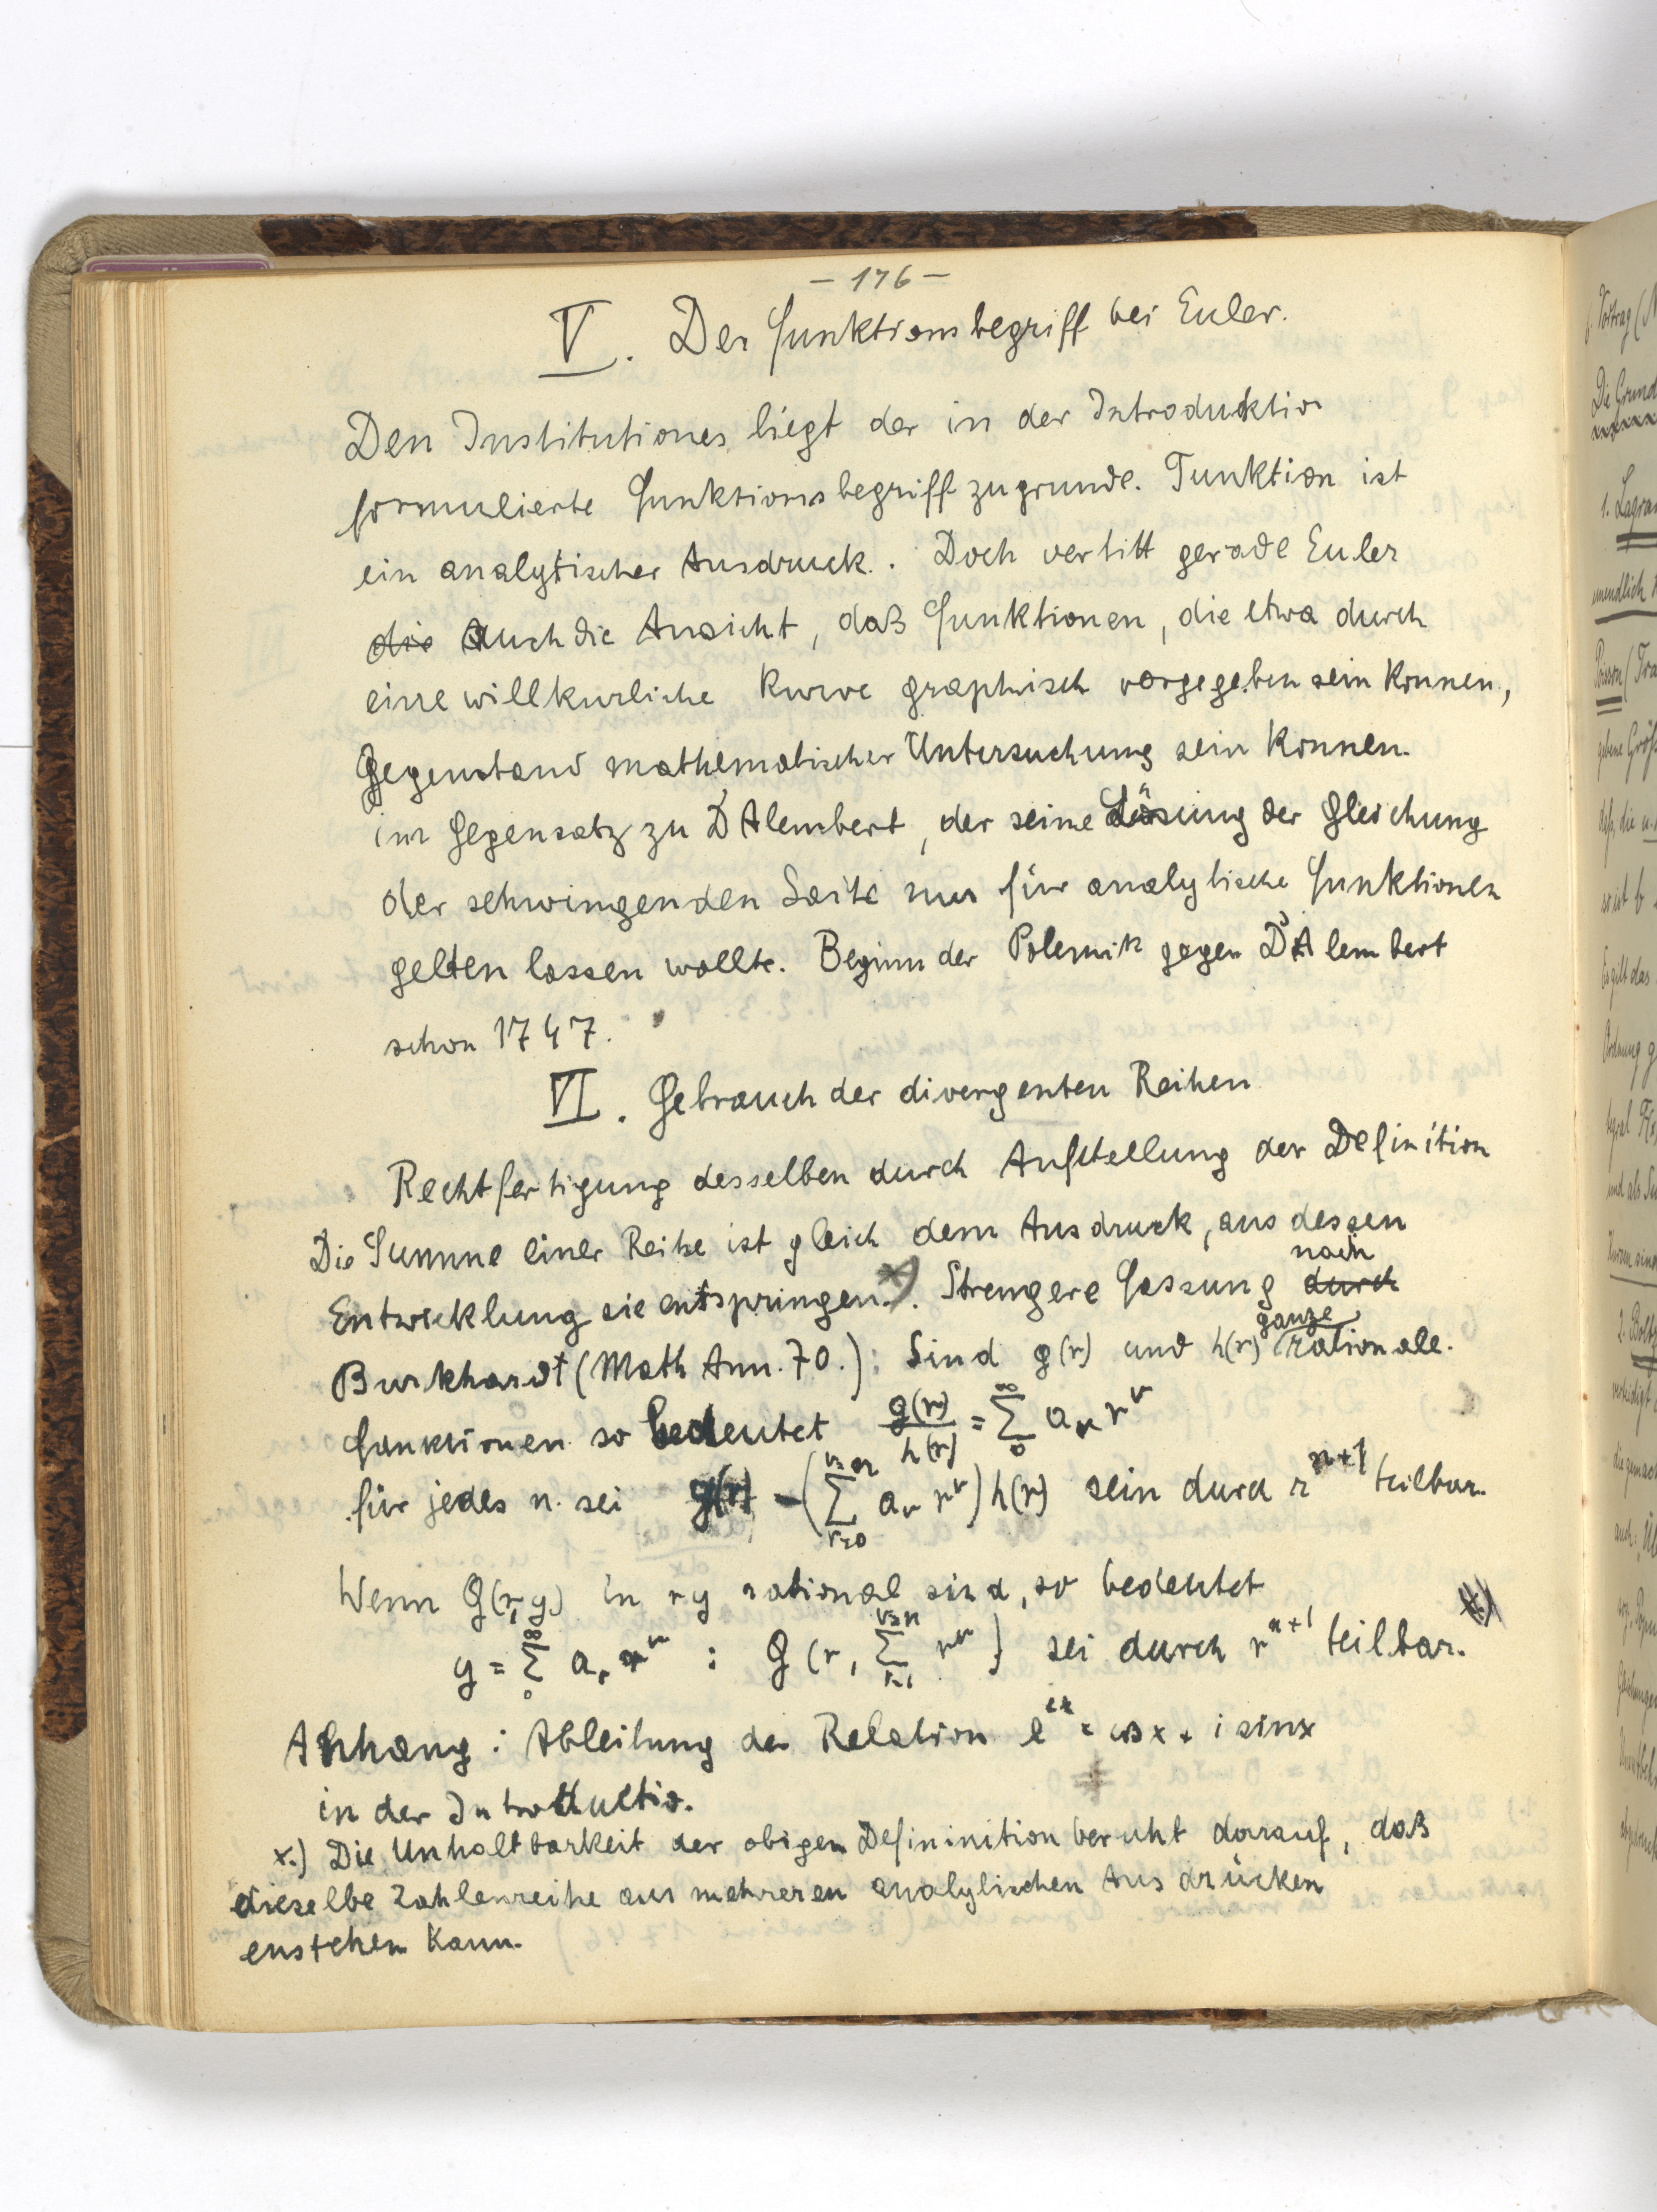 – 176 –
V. Der Funktionsbegriff bei Euler.
Den Institutiones liegt der in der Introduktio
formulierte Funktionsbegriff zugrunde. Funktion ist
ein analytischer Ausdruck. Doch vertitt gerade Euler
die auch die Ansicht, daß Funktionen, die etwa durch
eine willkurliche Kurve graphisch vorgegeben sein konnen,
Gegenstand mathematischer Untersuchung sein konnen.
im Gegensatz zu D'Alembert, der seine Lösung der Gleichung
der schwingenden Saite nur für analytische Funktionen
gelten lassen wollte. Beginn der Polemik gegen D'Alembert
schon 1747.
VI. Gebrauch der divergenten Reihen
Rechtfertigung desselben durch Aufstellung der Definition
Die Summe einer Reihe ist gleich dem Ausdruck, aus dessen
Entwicklung sie entspringen.*). Strengere Fassung durch nach
Burkhardt (Math Ann. 70.): Sind g(r) und h(r) ganze rationale.
Funktionen so bedeutet g(r)/h(r) = ∑₀^∞ aᵥ rᵛ
für jedes n. sei g(r) – (∑ᵥ₌₀^ᵛ⁼ⁿ aᵥ rᵛ) h(r) sein durch r^n+1 teilbar.
Wenn G(r,y) in r y rational sind, so bedeutet
y = ∑₀^∞ aᵥ rᵛ : G (r, ∑^ᵛ⁼ⁿ rᵛ) sei durch r^n+1 teilbar.
Anhang: Ableitung der Relation e^ix = cos x + i sin x
in der Introductio.
x.) Die Unhaltbarkeit der obigen Defininition beruht darauf, daß
dieselbe Zahlenreihe aus mehreren analytischen Ausdrücken
enstehen kann.